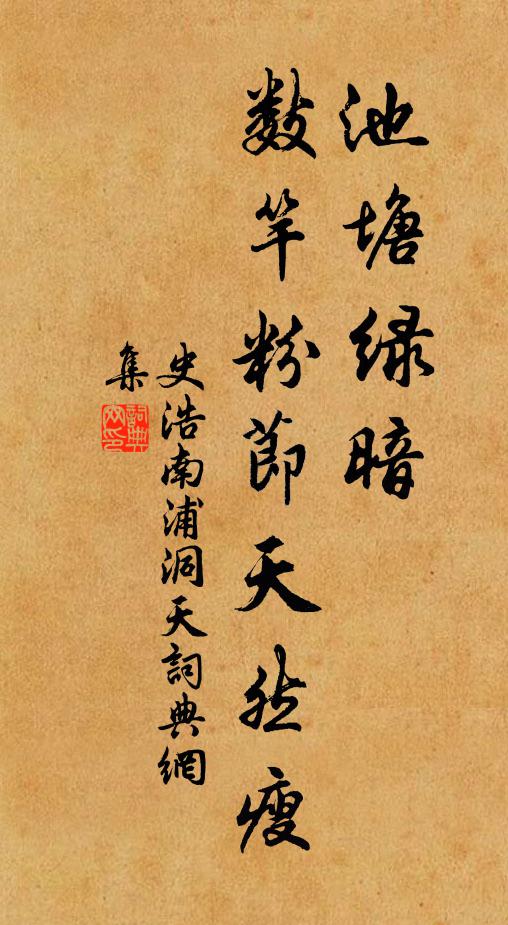 池塘绿暗
数竿粉節天然瘦
史浩南浦洞天詞典網
集
詞典网印